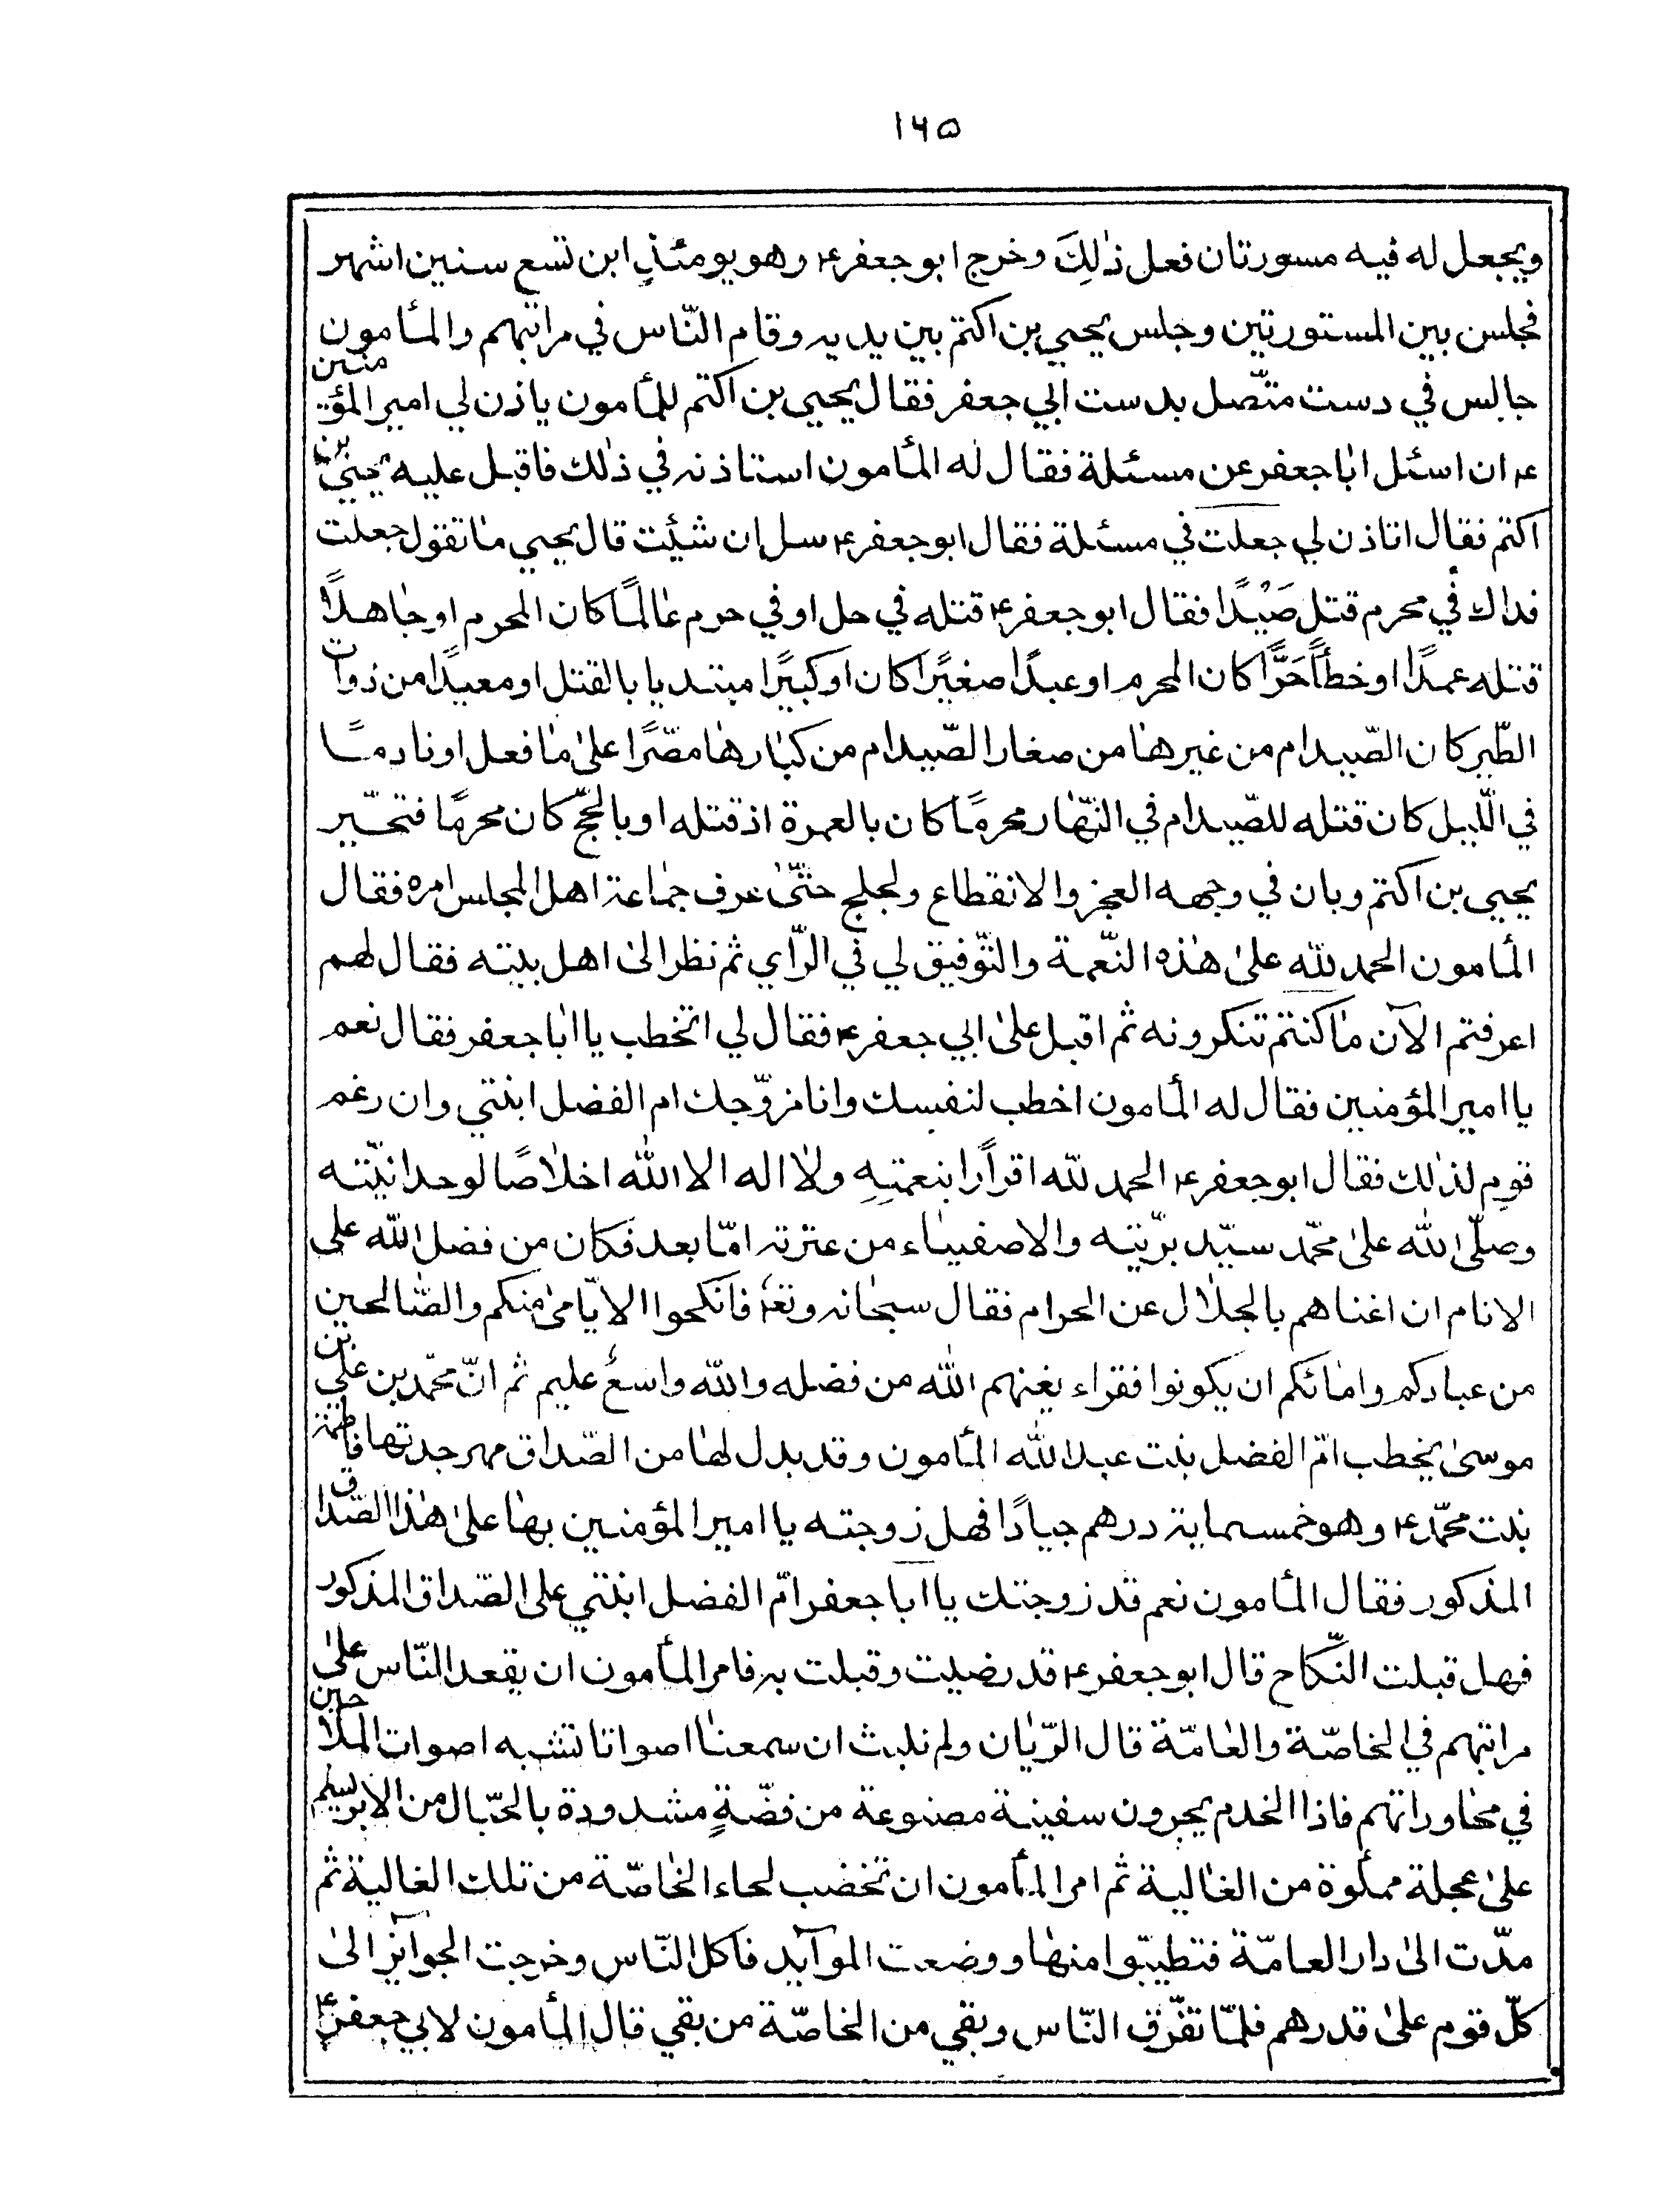 ١٦٥
ويجعل له فيه مسورتان ففعل ذٰلِكَ وخرج ابو جعفر ع وهو يومئذٍ ابن تسع سنين اشهر
فجلس بين المستورتين وجلس يحيي بن اكتم بين يديه وقام النّاس في مراتبهم والمأمون
جالس في دست متّصل بدست ابي جعفر فقال يحيي بن اكتم للمأمون ياذن لي امير المؤمنين
ع ان اسئل ابا جعفر عن مسئلة فقال له المأمون استاذنه في ذٰلك فاقبل عليه يحيىٰ بن
اكتم فقال اتاذن لي جعلت في مسئلة فقال ابو جعفر ع سل ان شئت قال يحيي مٰا تقول جعلت
فداك في محرم قتل صَيْدًا فقال ابو جعفر ع قتله في حل او في حرم عٰالمًا كان المحرم او جٰاهلًا
قتله عمدًا او خطأً حَرًّا كان المحرم او عبدًا صغيًرا كان او كبيًرا مبتديا بالقتل او معيدًا من ذوات
الطّير كان الصّيد ام من غيرهٰا من صغار الصّيد ام من كبٰارهٰا مصّرًا علىٰ مٰا فعل او نادمًا
في اللّيل كان قتله للصّيد ام في النّهٰار محرمًا كان بالعمرة اذ قتله او بالحجّ كان محرمًا فتحّير
يحيي بن اكتم وبان في وجهه العجز والانقطاع ولجلج حتّىٰ عرف جمٰاعة اهل المجلس امره فقال
المأمون الحمد للّه علىٰ هٰذه النّعمة والتّوفيق لي في الرّاي ثم نظر الىٰ اهل بيته فقال لهم
اعرفتم الآن مٰا كنتم تنكرونه ثم اقبل علىٰ ابي جعفر ع فقال لي اتخطب يا ابٰا جعفر فقال نعم
يا امير المؤمنين فقال له المأمون اخطب لنفسك وانا مزوّجك ام الفضل ابنتي وان رغم
قوم لذٰلك فقال ابو جعفر ع الحمد للّه اقرارًا بنعمتِهِ ولٰا اله الا اللّٰه اخلٰاصًا لوحدانيّته
وصلّى اللّٰه علىٰ محمّد سيّد بريّته والاصفيٰاء من عترته امّا بعد فكان من فضل اللّه علي
الانام ان اغناهم بالحلٰال عن الحرام فقال سبحٰانه وتعٰ فانكحوا الايّامىٰ منكم والصّالحين
من عبادكم وامٰائكم ان يكونوا فقراء يغنهم اللّه من فضله واللّه واسعٌ عليم ثم انّ محمّد بن علي بن
موسىٰ يخطب امّ الفضل بنت عبد اللّٰه المأمون وقد بدل لهٰا من الصّداق مهر جدتها فاطمة
بنت محمّد ع وهو خمسماية درهم جيادًا فهل زوجته يا امير المؤمنين بهٰا علىٰ هٰذا الصّداق
المذكور فقال المأمون نعم قد زوجتك يا ابا جعفر امّ الفضل ابنتي على الصّداق المذكور
فهل قبلت النّكاح قال ابو جعفر ع قد رضيت وقبلت به فامر المأمون ان يقعد النّاس علىٰ
مراتبهم في الخاصّة والعٰامّة قال الرّيٰان ولم نلبث ان سمعنٰا اصواتا تشبه اصوات الملٰاحين
في محٰاوراتهم فاذا الخدم يجرون سفينة مصنوعة من فضّةٍ مشدودة بالحبّال من الابريسلم
علىٰ عجلة مملّوة من الغٰالية ثم امر المأمون ان تخضب لحاء الخٰاصّة من تلك الغالية ثم
مدّت الىٰ دار العامّة فتطيبّوا منهٰا ووضعت الموآئد فاكل النّاس وخرجت الجوائز الىٰ
كلّ قوم علىٰ قدرهم فلمّا تفّرق النّاس وبقي من الخاصّة من بقي قال المأمون لابي جعفر ع